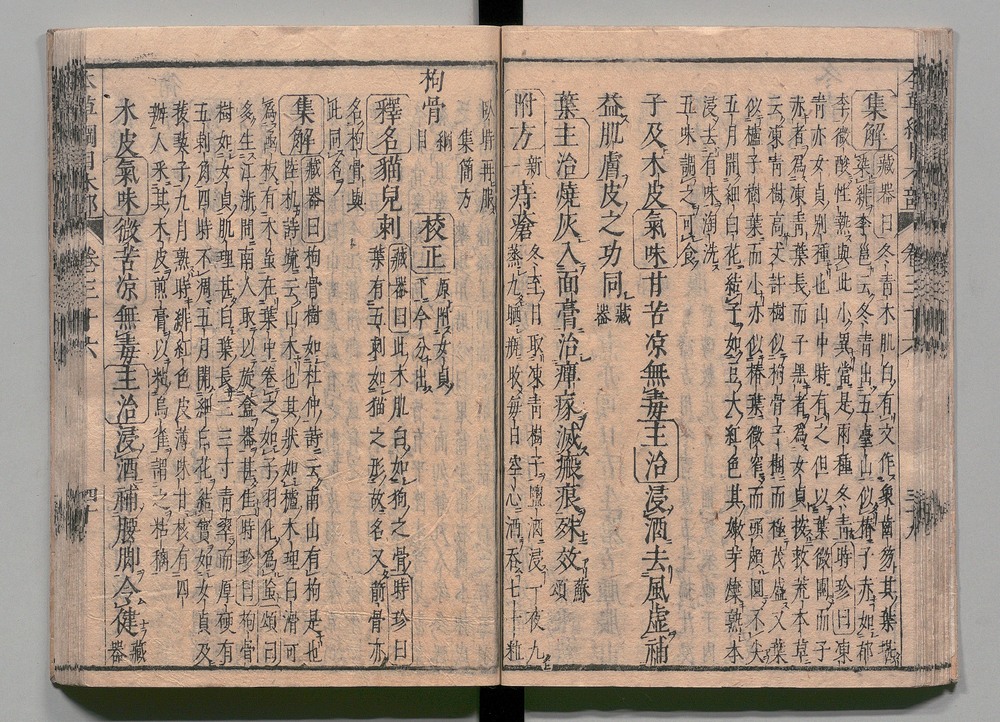 集解藏器曰冬青木肌白有文作象齒笏其葉堪
染緋李邕云冬青出五臺山葉似椿子赤如郁
李微酸性熱與此小異當是兩種冬青時珍曰凍
青亦女貞別種也山中時有之但以葉微團而子
赤者為凍青葉長而子黑者為女貞按救荒本草
云凍青樹高丈許樹似枸骨子樹而極茂盛又葉
似櫨子樹葉而小亦似椿葉微窄而頭頗圓不尖
五月開細白花結子如豆大紅色其嫩芽煠熟水
浸去有味淘洗
五味調之可食
子及木皮氣味甘苦凉無毒主治浸酒去風虛補
益肌膚皮之功同藏器
葉主治燒灰入面膏治瘃滅瘢痕殊效蘇頌
附方新一痔瘡冬至日取凍青樹子鹽酒浸一夜九
蒸九晒瓶收每日空心酒吞七十粒
臥時再服
集簡方
枸骨綱目校正原附女貞下今分出
釋名猫兒刺藏器曰此木肌白如狗之骨時珍曰
葉有五刺如猫之形故名又衞骨亦
名枸骨與
此同名
集解藏器曰枸骨樹如杜仲詩云南山有枸是也
陸機詩疏云山木也其狀如櫨木理白滑可
為函板有木虻在葉中卷之如子羽化為虻頌曰
多生江浙間南人取以旋盒器甚佳時珍曰狗骨
樹如女貞肌理甚白葉長二三寸青翠而厚硬有
五刺角四時不凋五月開細白花結實如女貞及
菝葜子九月熟時緋紅色皮薄味甘核有四
瓣人采其木皮煎膏以粘鳥雀謂之粘黐
木皮氣味微苦凉無毒主治浸酒補腰脚令健藏器